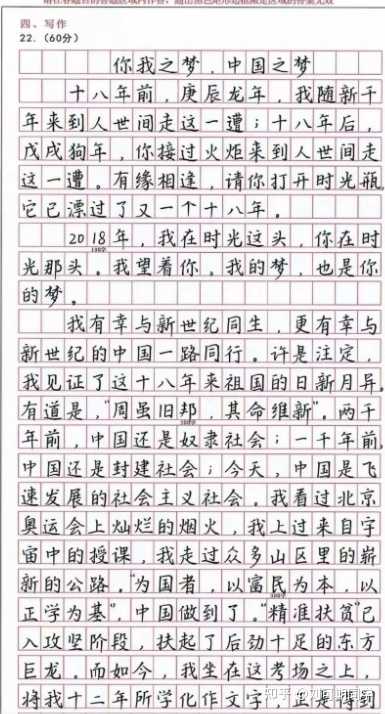 请在各题目的答题区域内作答，超出黑色矩形边框限定区域的答案无效
四、写作
22.（60分）
你我之梦，中国之梦
十八年前，庚辰龙年，我随新千
年来到人世间走这一遭；十八年后，
戊戌狗年，你接过火炬来到人世间走
这一遭。有缘相逢，请你打开时光瓶，
它已漂过了又一个十八年。
2018年，我在时光这头，你在时
光那头。我望着你。我的梦，也是你
的梦。
我有幸与新世纪同生，更有幸与
新世纪的中国一路同行。许是注定，
我见证了这十八年来祖国的日新月异。
有道是，“周虽旧邦，其命维新”。两千
年前，中国还是奴隶社会；一千年前，
中国还是封建社会；今天，中国是飞
速发展的社会主义社会。我看过北京
奥运会上灿烂的烟火，我上过来自宇
宙中的授课，我走过众多山区里的崭
新的公路。“为国者，以富民为本，以
正学为基”，中国做到了。“精准扶贫”已
入攻坚阶段，扶起了后劲十足的东方
巨龙。而如今，我坐在这考场之上，
将我十二年所学化作文字，正是得到